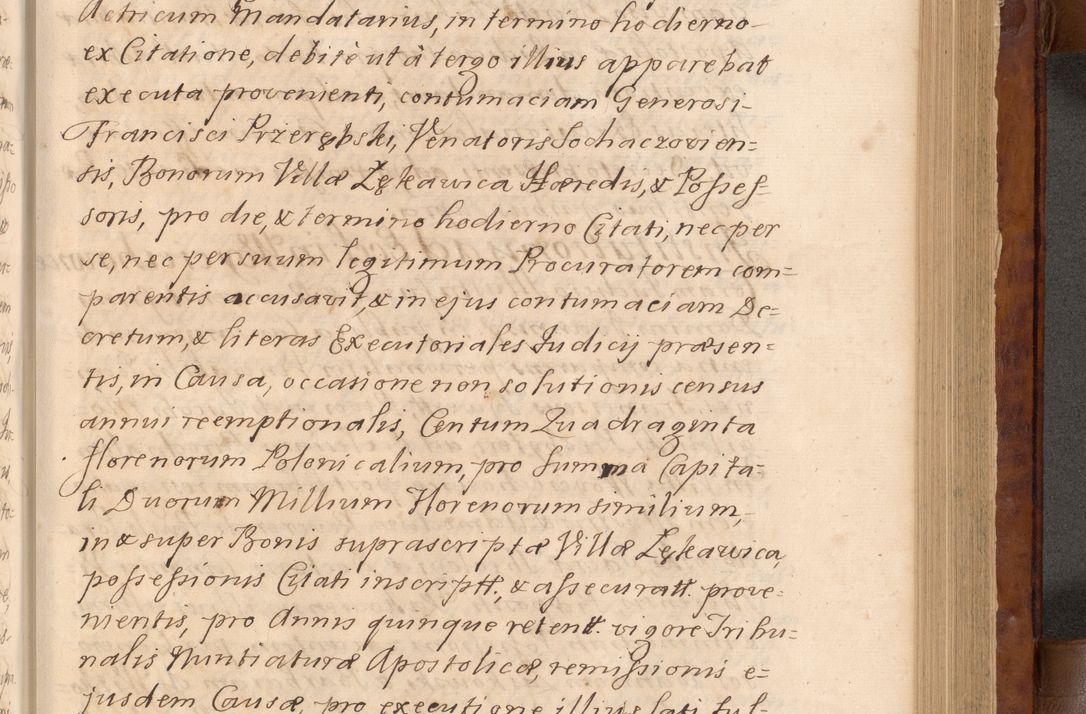 Actricum Mandatarius, in termino hodierno
ex Citatione, debite ut à tergo illius apparebat
executa provenienti, contumaciam Generosi
Francisci Przerębski, Venatoris Sochaczovien=
sis, Bonorum Villæ Łękawica Hæredis, & Posses=
soris, pro die, & termino hodierno Citati, nec per
se, nec per suum legitimum Procuratorem com=
parentis accusavit, & in ejus contumaciam De=
cretum, & literas Executoriales Judicij præsen=
tis, in Causa, occatione non solutionis census
annui reemptionalis, Centum Quadraginta
florenorum Polonicalium, pro Summa Capita=
li Duorum Millium Florenorum similium,
in & super Bonis suprascriptæ Villæ Łękawica,
possessionis Citati inscriptt., & assecuratt. prove=
nientis, pro Annis quinque retentt. vigore Tribu=
nalis Nuntiaturæ Apostolicæ, remissionis e=
jusdem Causæ, pro executione illius lati ful=